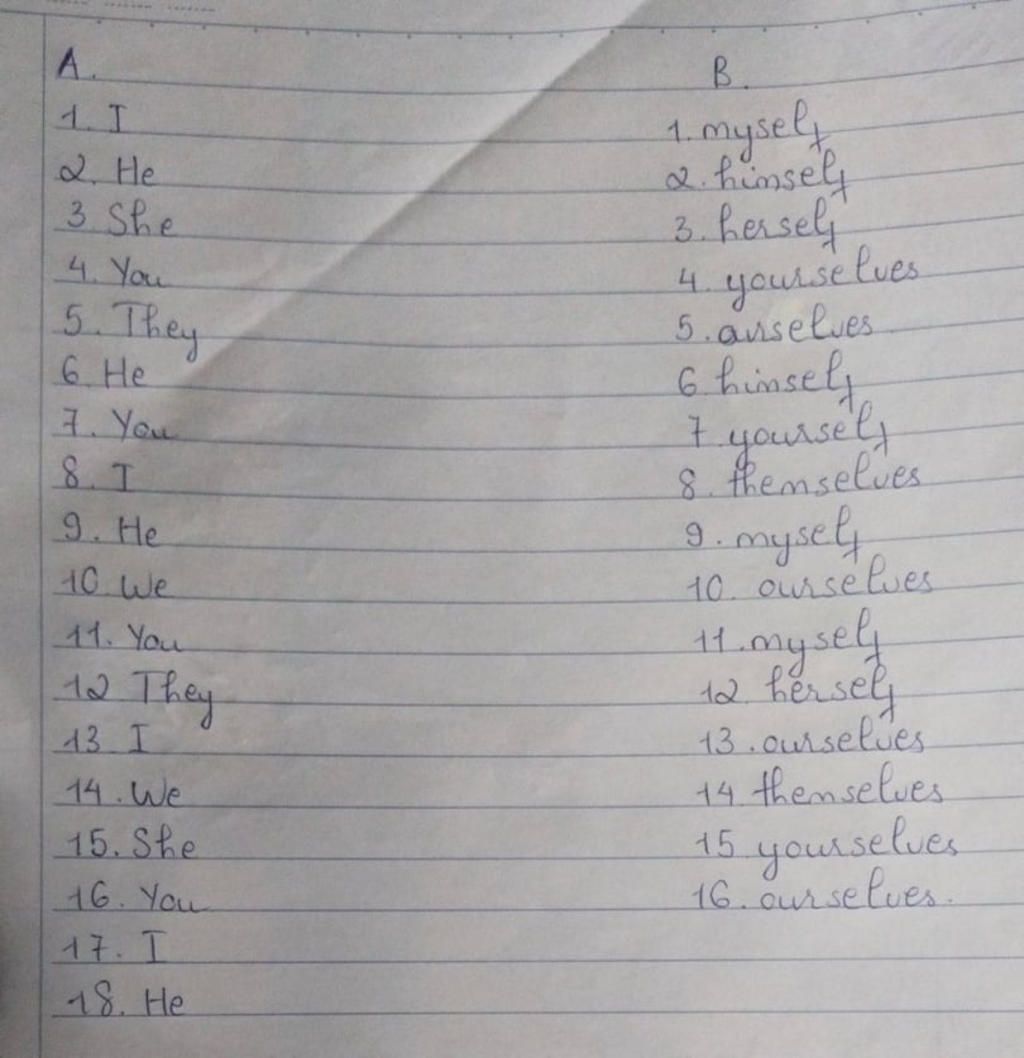 A.
1. I
2. He
3 She
4. You
5. They
6 He
7. You
8. I
9. He
10 We
11. You
12 They
13 I
14. We
15. She
16. You
17. I
18. He
B.
1. myself
2. himself
3. herself
4 yourselves
5. ourselves
6 himself
7 yourself
8. themselves
9. myself
10. ourselves
11. myself
12 herself
13. ourselves
14 themselves
15 yourselves
16. ourselves.